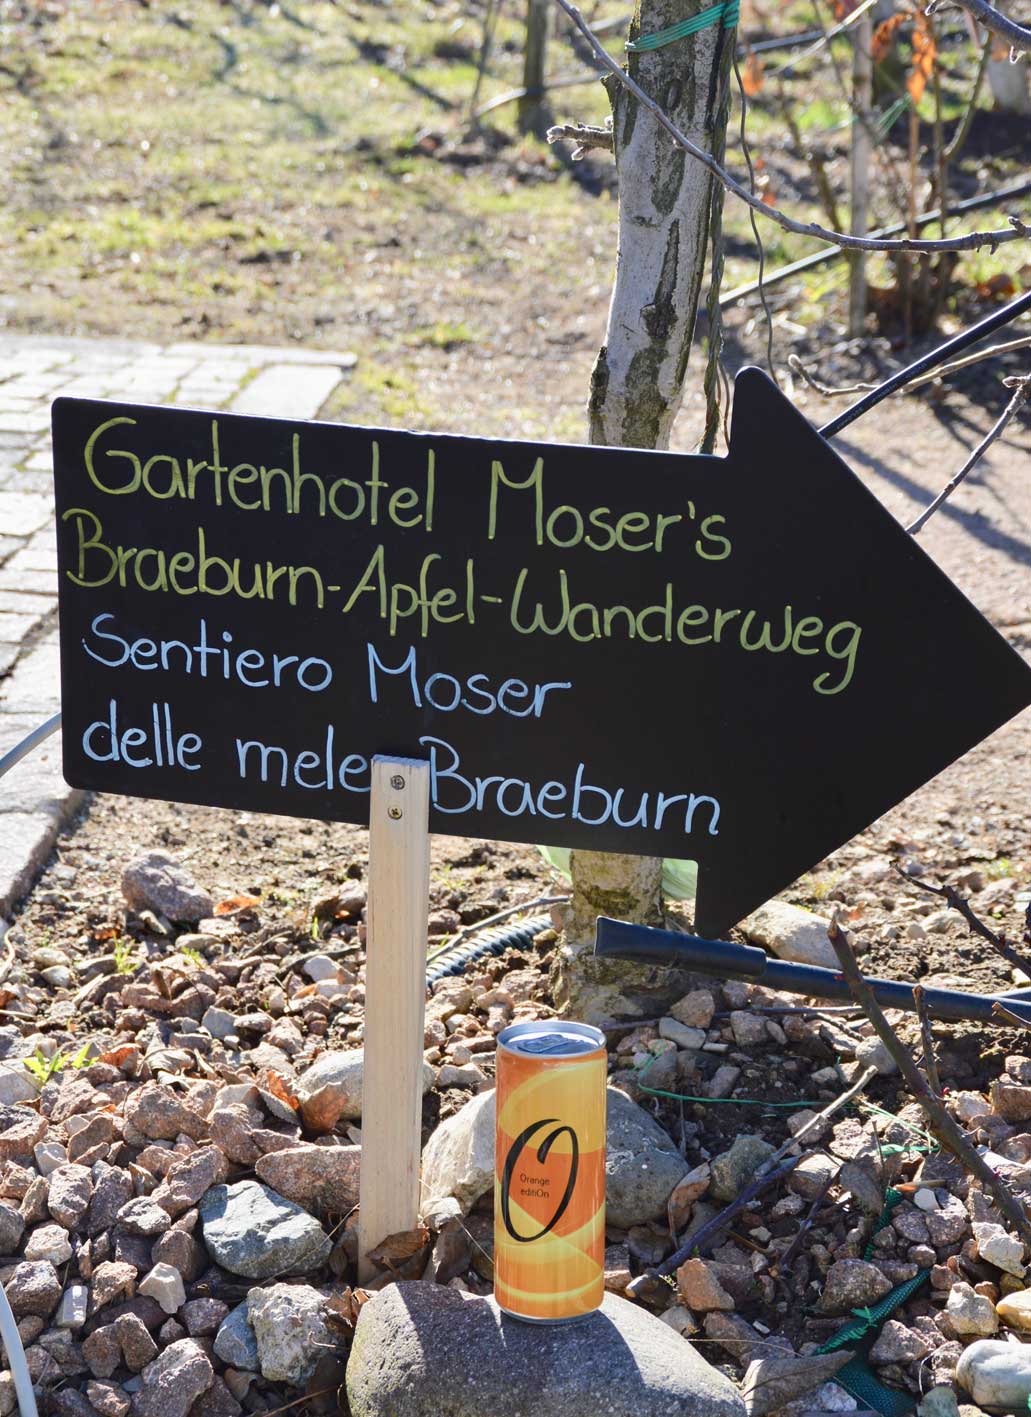 Gartenhotel Moser's
Braeburn-Apfel-Wanderweg
Sentiero Moser
delle mele Braeburn
O
Orange
editiOn